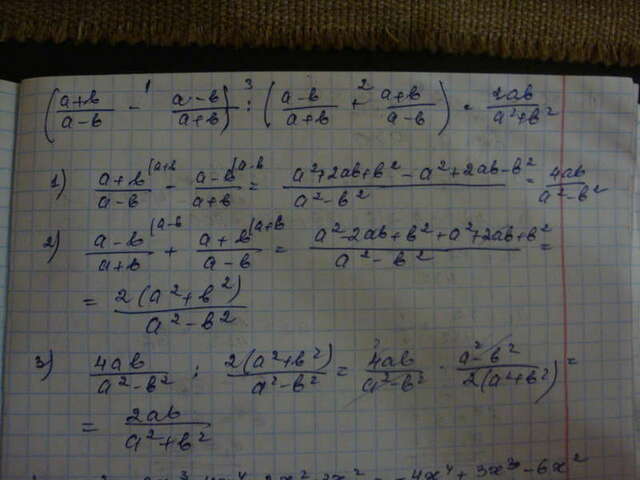 ((a+b)/(a-b) -¹ (a-b)/(a+b)) :³ ((a-b)/(a+b) +² (a+b)/(a-b)) = 2ab/(a²+b²)
1) (a+b)/(a-b) (a+b - (a-b)/(a+b) (a-b = (a²+2ab+b²-a²+2ab-b²)/(a²-b²) = 4ab/(a²-b²)
2) (a-b)/(a+b) (a-b + (a+b)/(a-b) (a+b = (a²-2ab+b²+a²+2ab+b²)/(a²-b²) =
= 2(a²+b²)/(a²-b²)
3) 4ab/(a²-b²) : 2(a²+b²)/(a²-b²) = 4ab/(a²-b²) · (a²-b²)/(2(a²+b²)) =
= 2ab/(a²+b²)
= -4x⁴+3x³-6x²